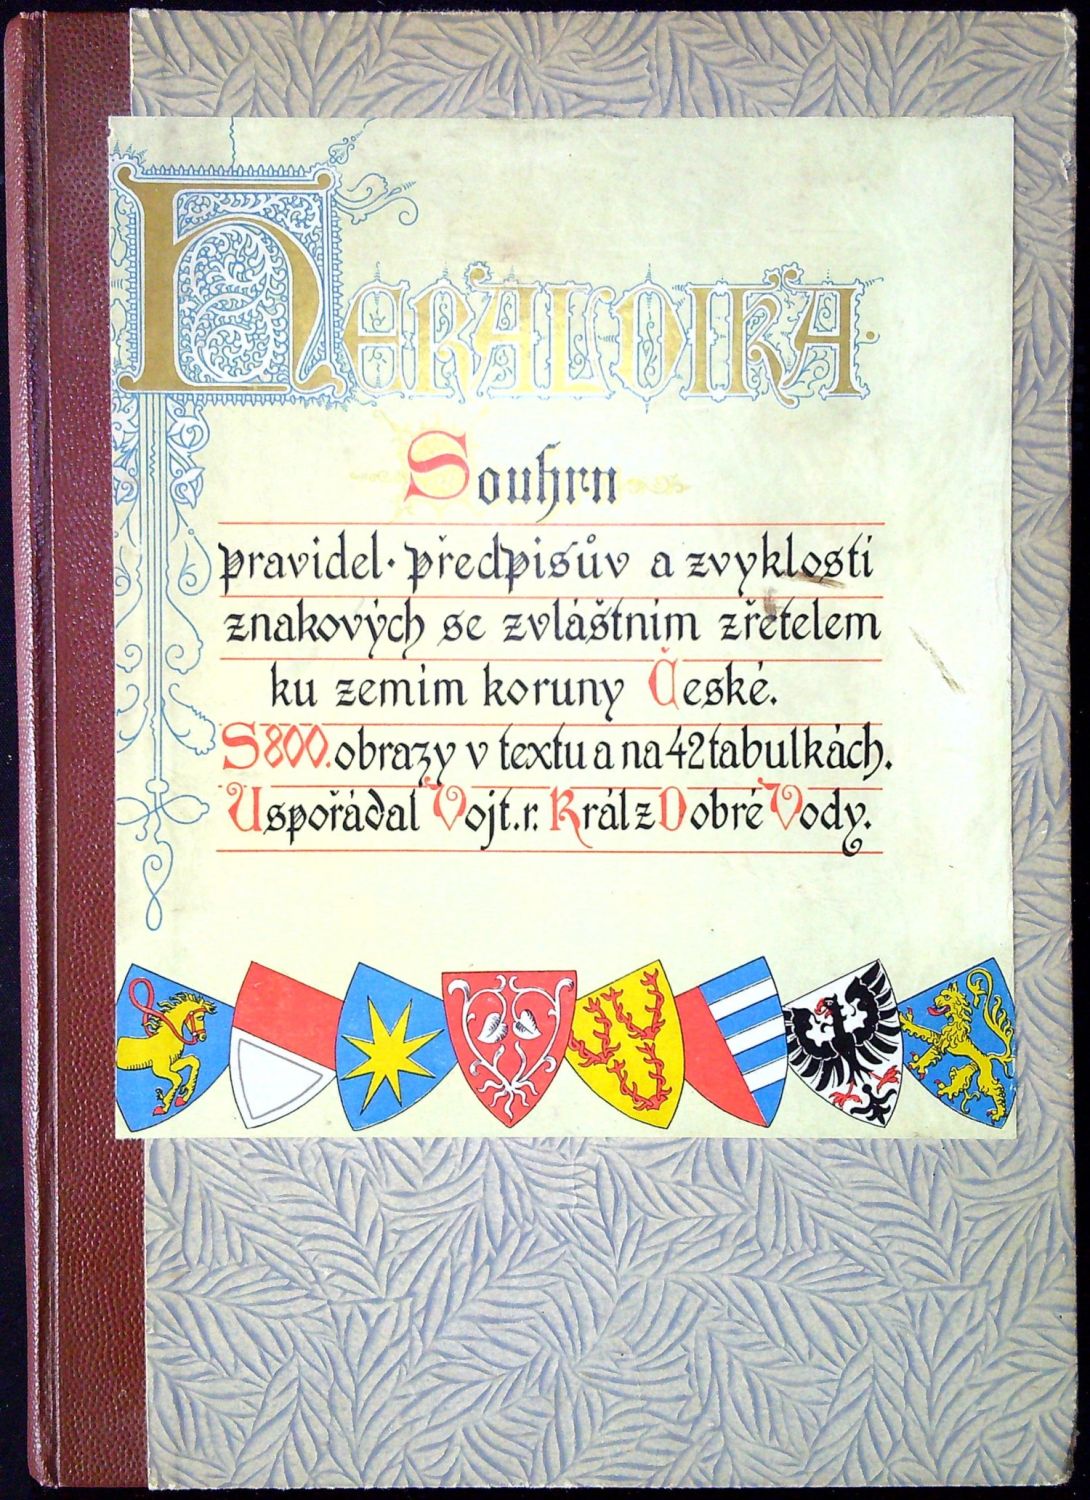 HERALDIKA.
Souhrn
pravidel · předpisův a zvyklostí
znakových se zvláštním zřetelem
ku zemím koruny České.
S 800. obrazy v textu a na 42 tabulkách.
Uspořádal Vojt. r. Král z Dobré Vody.